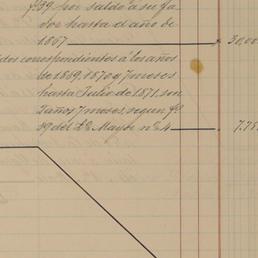 f. 39 por saldo a su fa
vor hasta el año de
1867 30,00
dos correspondientes á los años
de 1869, 1870 y 7 meses
hasta Julio de 1871, son
2 años 7 meses, segun f.
19 del L. Mayor n. 4 7.75